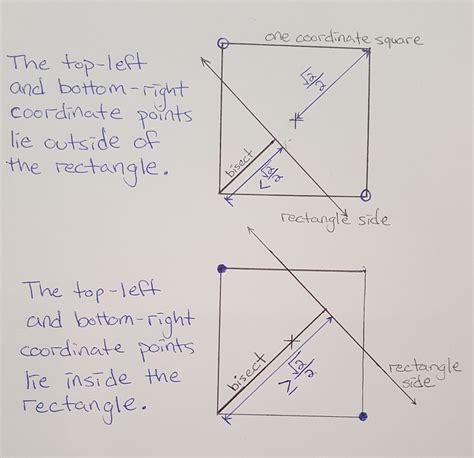 one coordinate square
The top-left
and bottom-right
coordinate points
lie outside of
the rectangle.
√2/2
bisect
< √2/2
rectangle side
The top-left
and bottom-right
coordinate points
lie inside the
rectangle.
bisect
> √2/2
rectangle
side